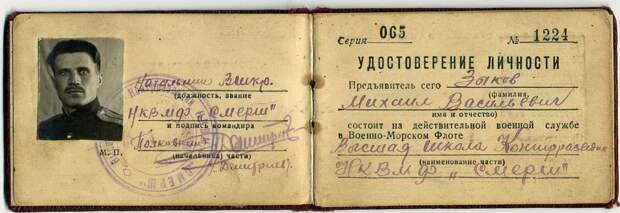 Начальник
(должность, звание
НКВМФ "Смерш"
и подпись командира
Полковник
(начальника) части)
(Дмитриев)
М. П.
Серия 065 № 1224
УДОСТОВЕРЕНИЕ ЛИЧНОСТИ
Предъявитель сего Зыков
(фамилия,
Михаил Васильевич
имя и отчество)
состоит на действительной военной службе
в Военно-Морском Флоте
Высшая школа Контрразведки
(наименование части)
НКВМФ "Смерш"